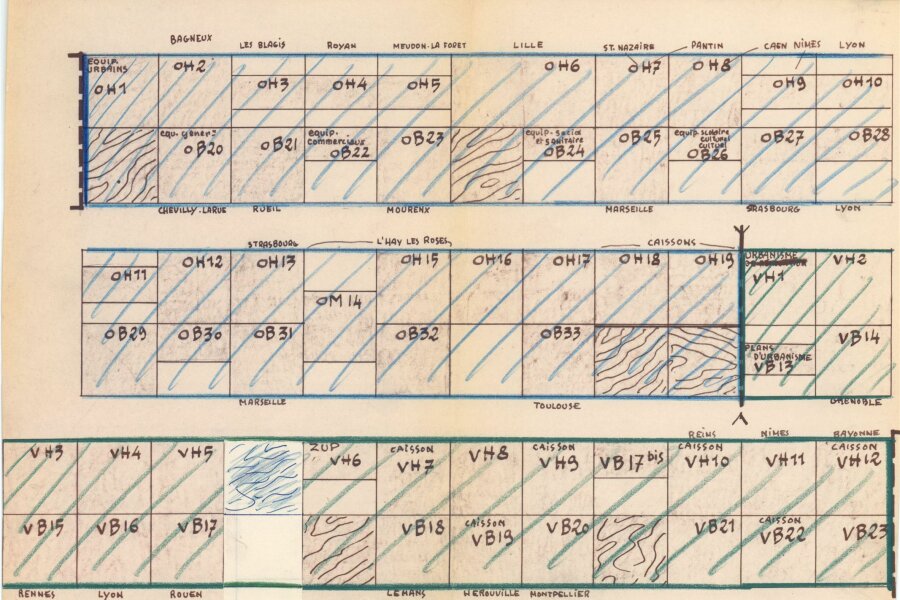 BAGNEUX LES BLAGIS ROYAN MEUDON-LA FORET LILLE ST. NAZAIRE PANTIN CAEN NÎMES LYON
EQUIP. URBAINS
OH1 OH2 OH3 OH4 OH5 OH6 OH7 OH8 OH9 OH10
equ. géner=
OB20 OB21
equip. commerciaux
OB22 OB23
equip. social et sanitaire
OB24 OB25
equip scolaire culturel
OB26 OB27 OB28
CHEVILLY-LARUE RUEIL MOURENX MARSEILLE STRASBOURG LYON
STRASBOURG L'HAY LES ROSES CAISSONS
OH11 OH12 OH13 OM14 OH15 OH16 OH17 OH18 OH19
URBANISME
VH1 VH2
OB29 OB30 OB31 OB32 OB33
PLANS D'URBANISME
VB13 VB14
MARSEILLE TOULOUSE GRENOBLE
REIMS NÎMES BAYONNE
VH3 VH4 VH5
ZUP
VH6
CAISSON
VH7 VH8
CAISSON
VH9 VB17 bis
CAISSON
VH10 VH11
CAISSON
VH12
VB15 VB16 VB17 VB18
CAISSON
VB19 VB20 VB21
CAISSON
VB22 VB23
RENNES LYON ROUEN LE MANS HEROUVILLE MONTPELLIER